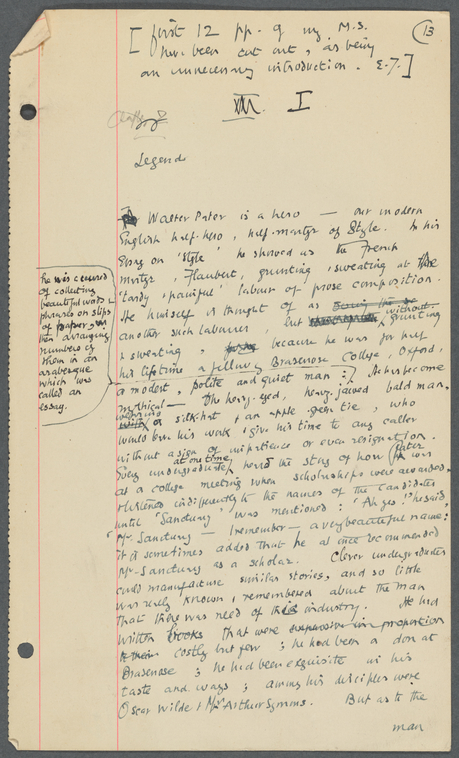 [first 12 pp. of my M.S.
have been cut out, as being
an unnecessary introduction. E.T.]
13
III. I
Chapter
Legend
Walter Pater is a hero — our modern
English half-hero, half-martyr of Style. In his
Essay on 'Style', he showed us the French
martyr, Flaubert, grunting & sweating at the
'tardy & painful' labour of prose composition.
He himself is thought of as
another such labourer, but without grunting
& sweating, because he was for half
his lifetime a fellow of Brasenose College, Oxford,
a modest, polite and quiet man:
he is accused
of collecting
beautiful words &
phrases on slips
of paper, &
then arranging
numbers of
them in an
arabesque
which was
called an
essay.
He has become
mythical — the heavy-eyed, heavy-jawed bald man,
wearing a silk-hat & an apple green tie, who
would leave his work & give his time to any caller
without a sign of impatience or even resignation.
Every undergraduate at one time heard the story of how Pater was
at a college meeting when scholarships were awarded.
& listened indifferently to the names of the candidates
until 'Sanctuary' was mentioned: 'Ah yes!' he said,
'Mr. Sanctuary — I remember — a very beautiful name':
it is sometimes added that he at once recommended
Mr. Sanctuary as a scholar. Clever undergraduates
could manufacture similar stories, and so little
was really known & remembered about the man
that there was need of this industry. He had
written books that were expensive in proportion
to their costly but few; he had been a don at
Brasenose; he had been exquisite in his
taste and ways; among his disciples were
Oscar Wilde & Mr Arthur Symons. But as to the
man